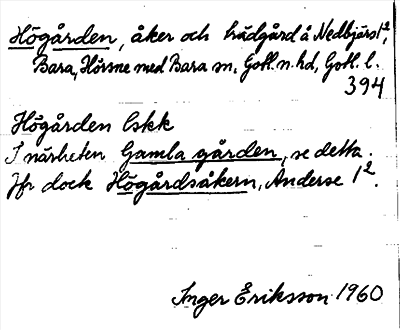 Högården, åker och trädgård å Nedbjärs 1²,
Bara, Hörsne med Bara sn, Gotl. n. hd, Gotl. l.
394
Högården Cskk
I närheten Gamla gården, se detta.
Jfr dock Högårdsåkern, Anderse 1².
Inger Eriksson 1960